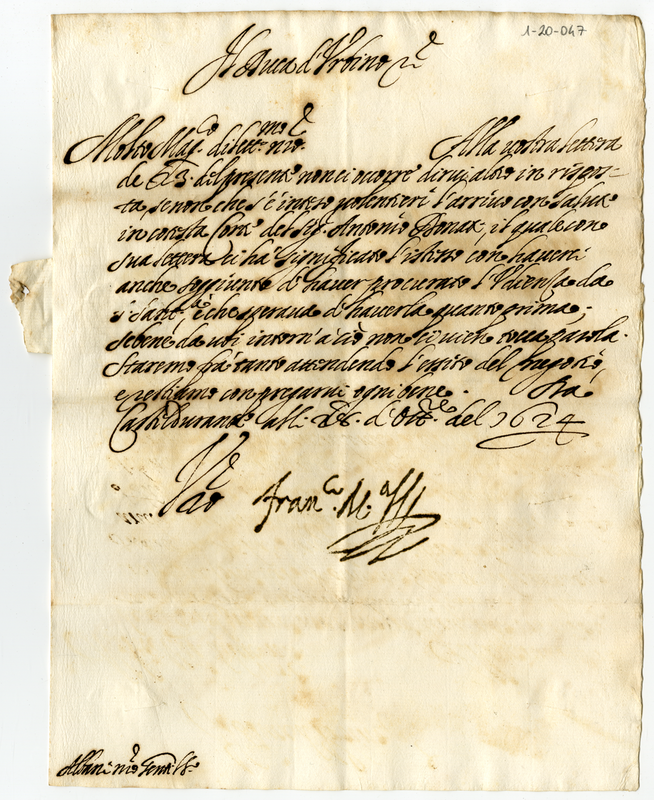 1-20-047
Il Duca d'Urbino etc.
Molto Mag.co dilett.mo nro. Alla vostra lettera
de 23. del presente non ci occorre dirvi altro in rispos-
ta, se non che s'è inteso volentieri l'arrivo con salute
in cotesta Corte del Sig. Antonio Donat, il quale con
sua lettera ci ha significato l'istesso con haverci
anche soggiunto d'haver procurato l'Udienza da
S. Sant.tà e che sperava d'haverla quanto prima;
sebene da voi intorn'a ciò non ci vien tocca parola.
Staremo frà tanto attendendo l'essito del negotio,
e restiamo con pregarvi ogni bene. Da
Casteldurante alli 28. d'Ott.re del 1624
Franc.o M.a
Albani nro